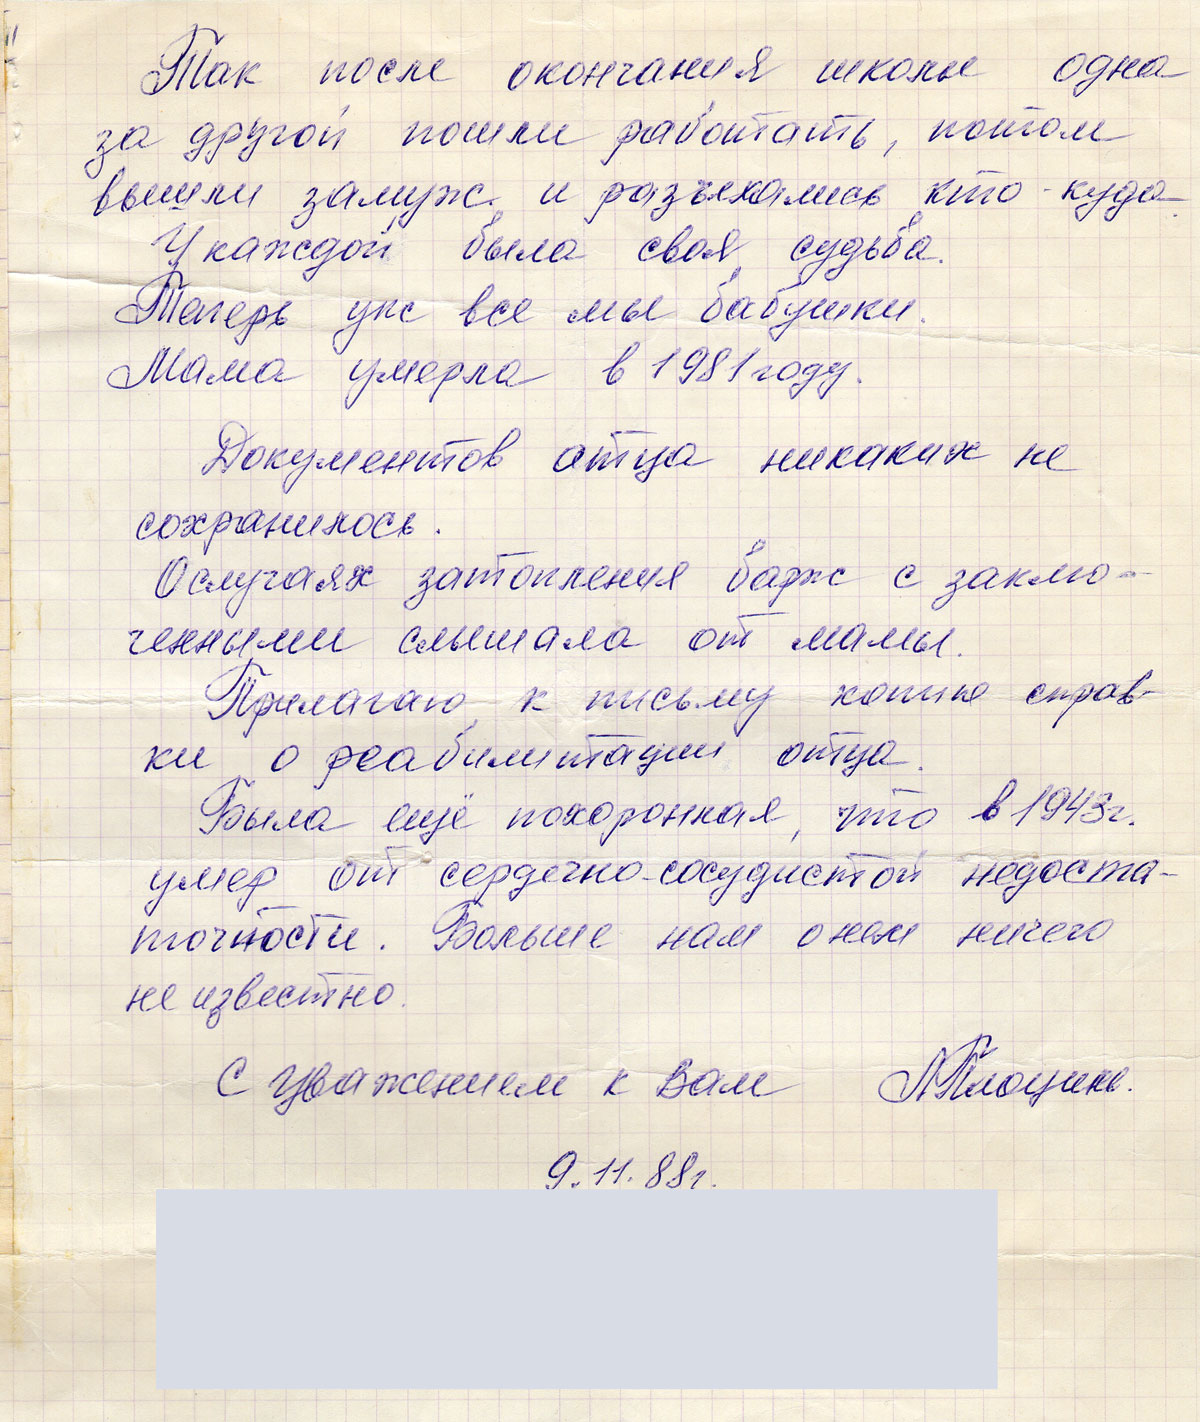 Так после окончания школы одна
за другой пошли работать, потом
вышли замуж и разъехались кто-куда
У каждой была своя судьба.
Теперь уже все мы бабушки.
Мама умерла в 1981 году.
Документов отца никаких не
сохранилось.
О случаях затопления барж с заклю-
ченными слышала от мамы.
Прилагаю к письму копию справ-
ки о реабилитации отца.
Была ещё похоронная, что в 1943г.
умер от сердечно-сосудистой недоста-
точности. Больше нам о нем ничего
не известно.
С уважением к Вам
9.11.88г.